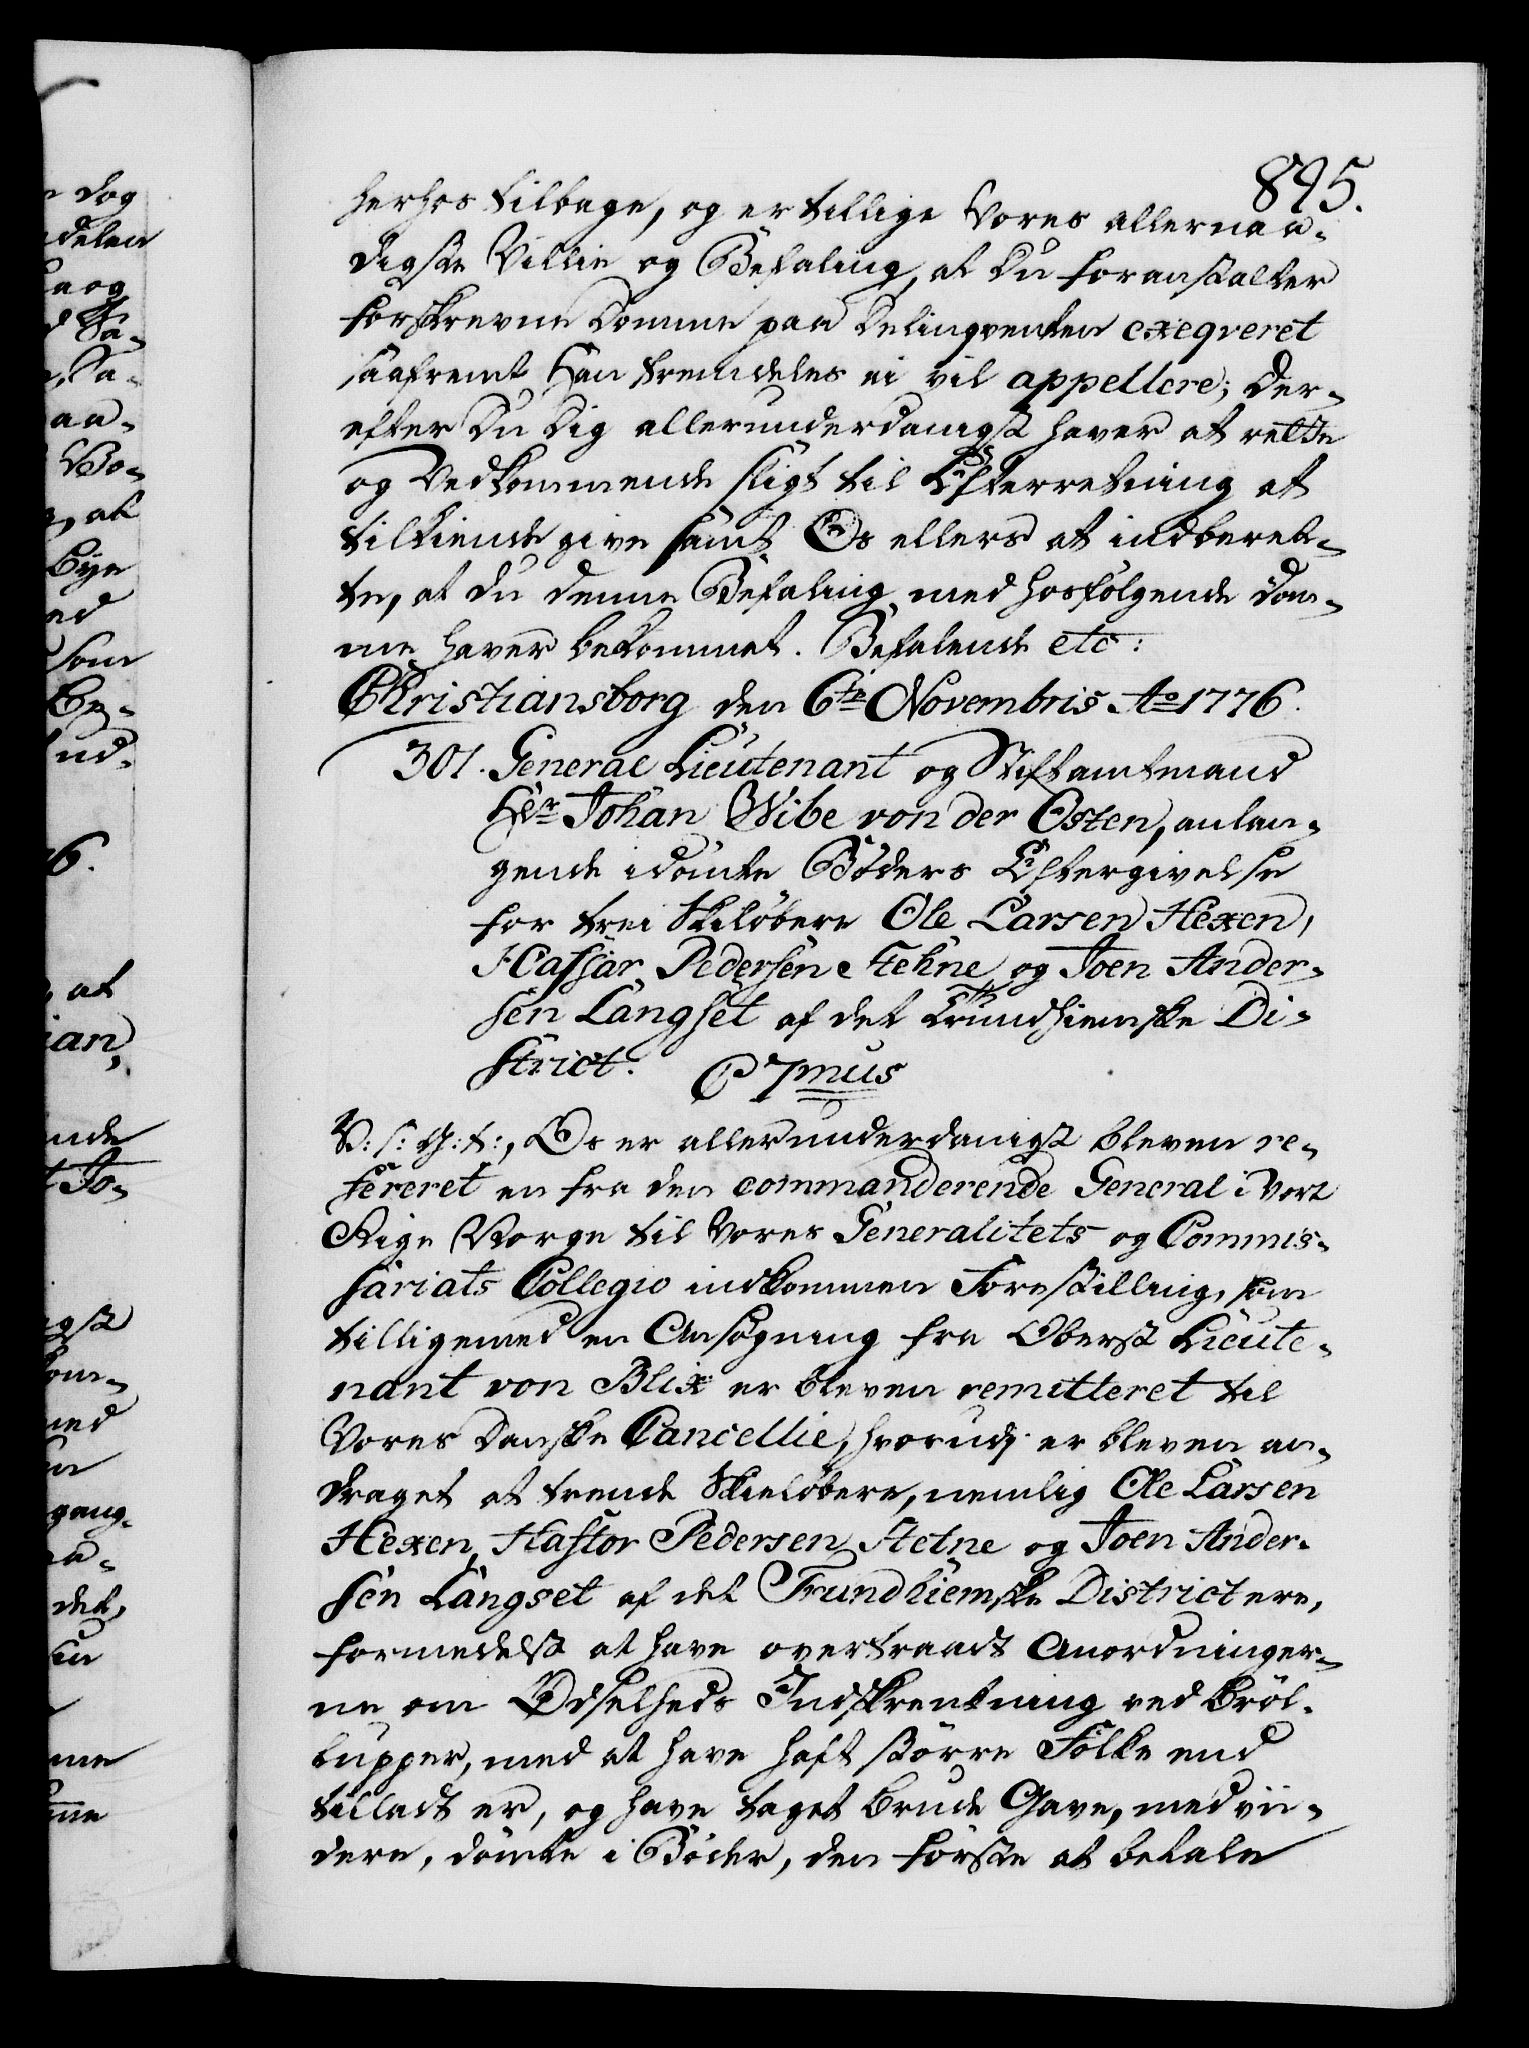 895.
herhos tilbage, og er tillige Vores allernaa-
digste Villie og Befaling, at Du foranstalter
forskrevne Domme paa Delinqventen exeqveret
saafremt Han fremdeles ei vil appellere; Der-
efter Du Dig allerunderdanigst haver at rette
og Vedkommende sligt til Efterretning at
tilkiende give samt Os ellers at indberet-
te, at du denne Befaling med hosfölgende Dom-
me haver bekommet. Befalende etc:
Christiansborg den 6te Novembris Ao 1776.
301. General Lieutenant og Stiftamtmand
Hr Johan Wibe von der Osten, anlan-
gende idömte Böders Eftergivelse
for trei Skilöbere Ole Larsen Hexen,
Hassar Pedersen Stehne og Joen Ander-
sen Langset af det Trundhiemske Di-
strict. C 7mus
V: s: G: t:, Os er allerunderdanigst bleven re-
fereret en fra den commanderende General i Vort
Rige Norge til Vores Generalitets og Commis-
sariats Collegio indkommen Forestilling, som
tilligemed en Ansögning fra Oberst Lieute-
nant von Blix er bleven remitteret til
Vores Danske Cancellie, hvorudj er bleven an-
draget at trende Skielöbere, nemlig Ole Larsen
Hexen, Hastor Pedersen Stetne og Joen Ander-
sen Langset af det Trundhiemske District ere,
formedelst at have overtraadt Anordninger-
ne om Ödselheds Indskrenkning ved Bröl-
lupper, med at have haft större Folke end
tilladt er, og have taget Brude Gave, med vii-
dere, dömte i Böder, den förste at betale